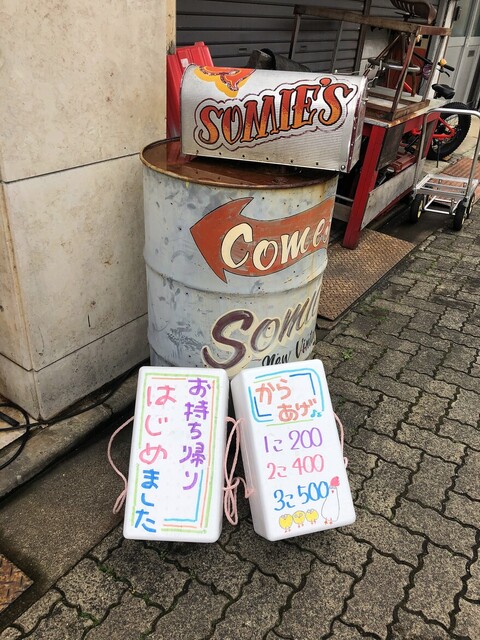 SOMIE'S
Come
Somi
New Vin
お持ち帰り
はじめました
からあげ♪
1コ 200
2コ 400
3コ 500